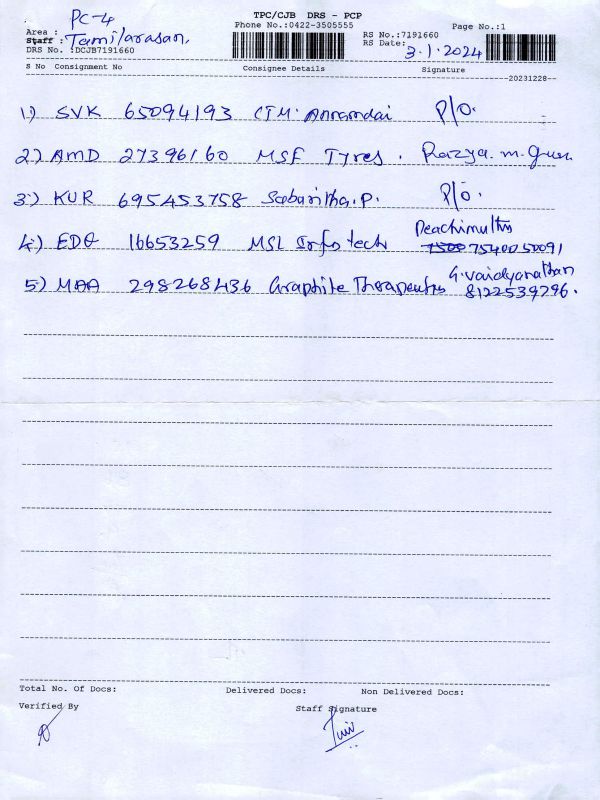 PC-4
TPC/CJB DRS - PCP
Phone No.:0422-3505555
Page No.:1
Area :
Staff : Tamilarasan.
RS No.:7191660
DRS No. :DCJB7191660
RS Date: 3.1.2024
S No Consignment No Consignee Details Signature
20231228
1) SVK 65094193 CTM. P/O.
2) AMD 27396160 MSF Tyres. Razya. m.
3) KUR 695453758 Sabaritha.P. P/o.
Peachimuthu
4) EDG 16653259 MSL Info tech 7500 7540050091
G.Vaidyanathan
5) MAA 298268436 Graphite Therapeutics 8122539796.
Total No. Of Docs: Delivered Docs: Non Delivered Docs:
Verified By Staff Signature